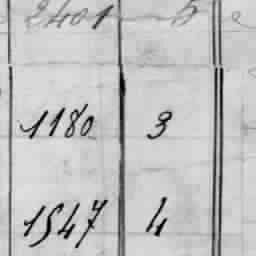 2401 5
1180 3
1547 4